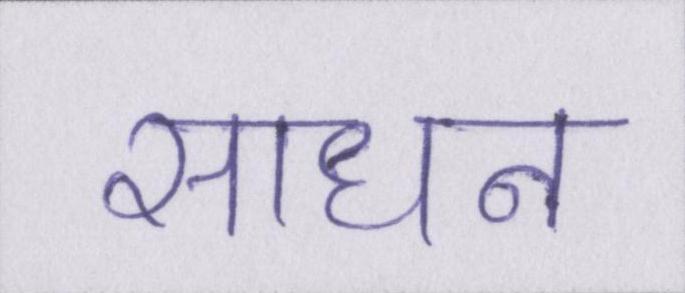 साधन